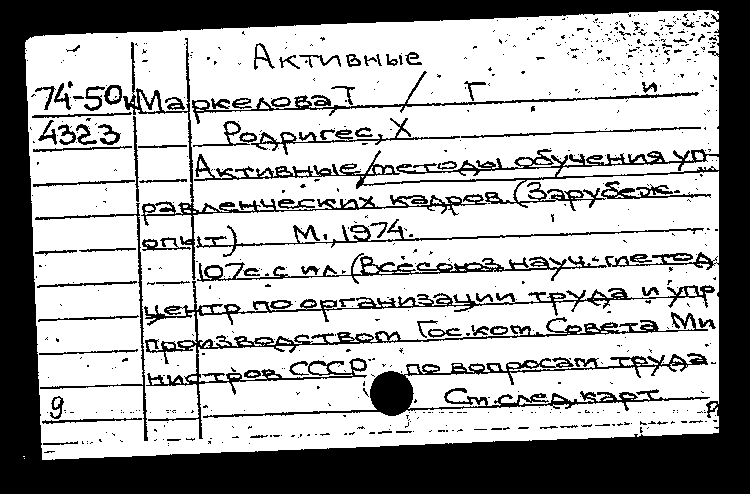 Активные
74-50к Маркелова, Т Г и
4323 Родригес, Х
Активные методы обучения уп-
равленческих кадров (Зарубеж.
опыт) М., 1974.
107с. с ил. (Всесоюз науч.-метод
центр по организации труда и упр.
производством Гос. ком. Совета Ми
нистров СССР по вопросам труда
9 См. след. карт.